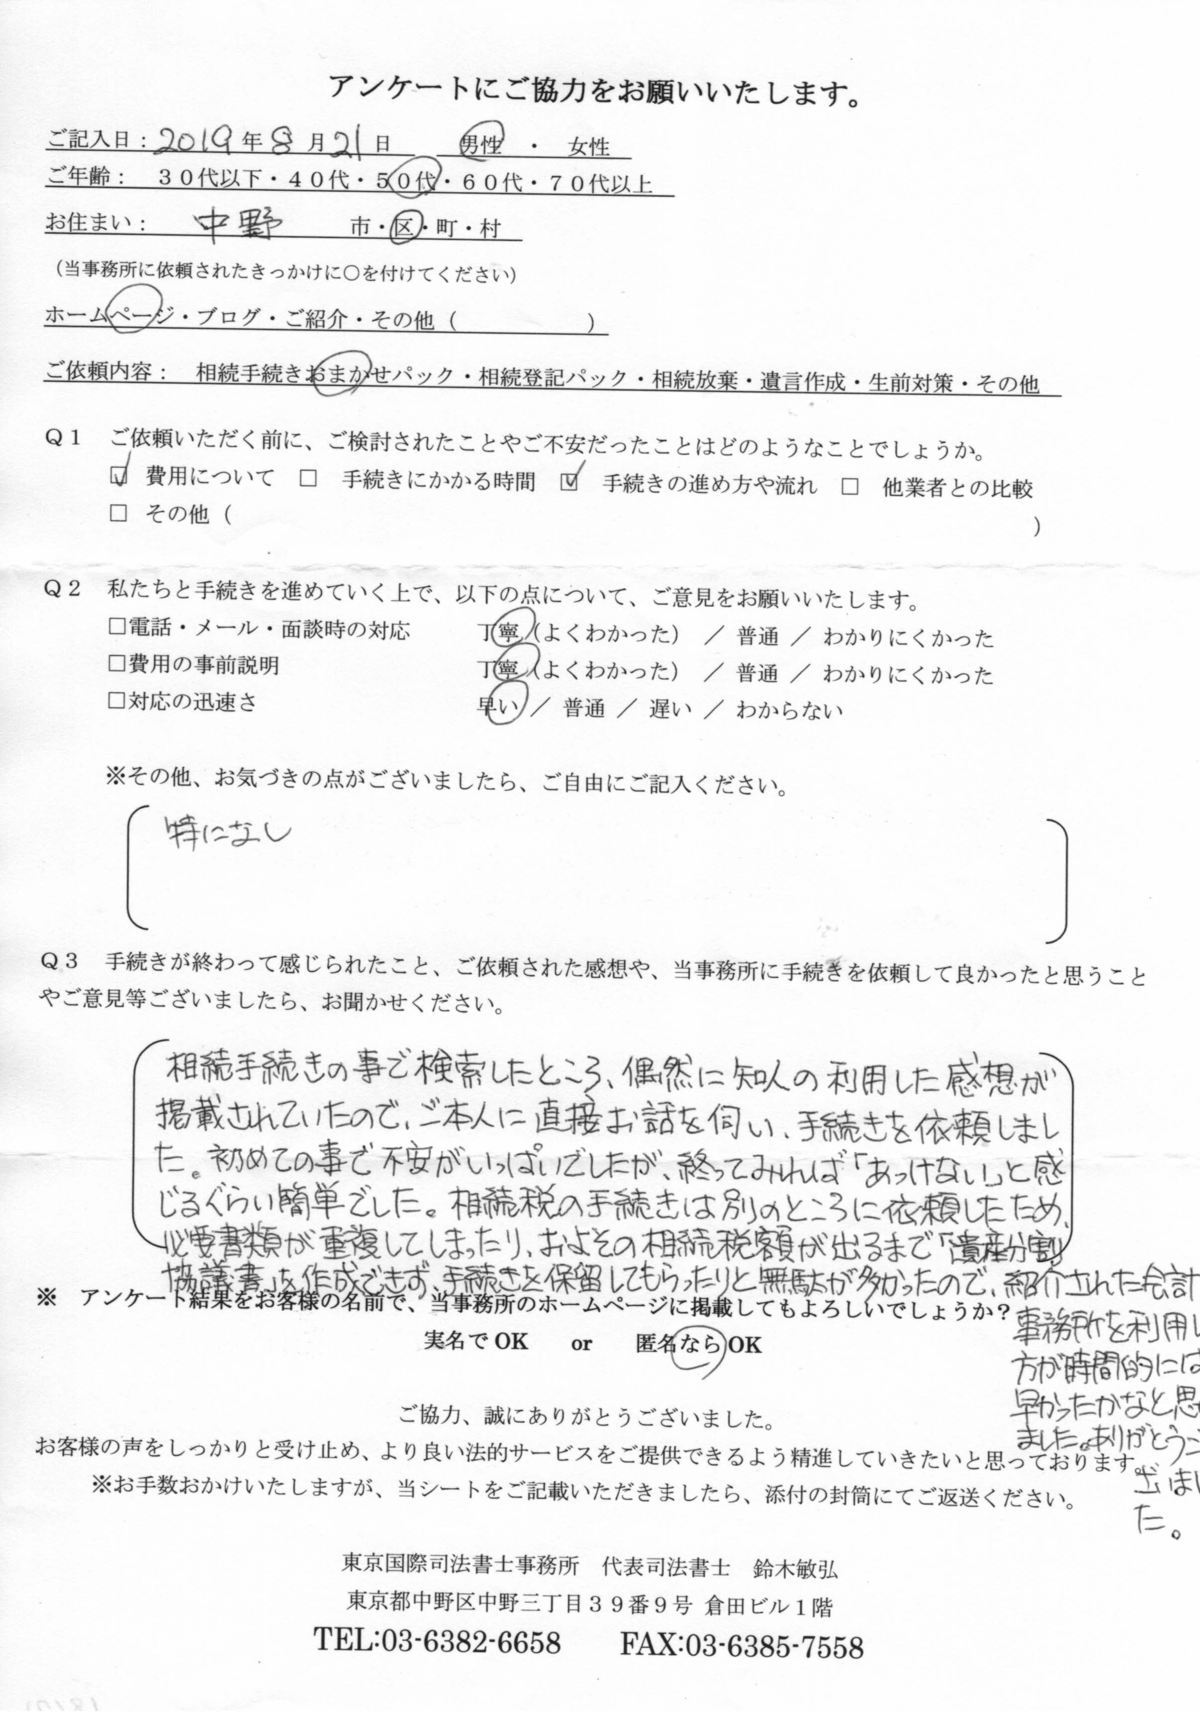 アンケートにご協力をお願いいたします。
ご記入日：2019年8月21日　男性　・　女性
ご年齢：　３０代以下・４０代・５０代・６０代・７０代以上
お住まい：　中野　市・区・町・村
（当事務所に依頼されたきっかけに○を付けてください）
ホームページ・ブログ・ご紹介・その他（　　　　　　）
ご依頼内容：　相続手続きおまかせパック・相続登記パック・相続放棄・遺言作成・生前対策・その他
Ｑ１　ご依頼いただく前に、ご検討されたことやご不安だったことはどのようなことでしょうか。
☑ 費用について　□ 手続きにかかる時間　☑ 手続きの進め方や流れ　□ 他業者との比較
□ その他（　　　　　　　　　　　　）
Ｑ２　私たちと手続きを進めていく上で、以下の点について、ご意見をお願いいたします。
□電話・メール・面談時の対応　丁寧（よくわかった）　／　普通　／　わかりにくかった
□費用の事前説明　丁寧（よくわかった）　／　普通　／　わかりにくかった
□対応の迅速さ　早い　／　普通　／　遅い　／　わからない
※その他、お気づきの点がございましたら、ご自由にご記入ください。
特になし
Ｑ３　手続きが終わって感じられたこと、ご依頼された感想や、当事務所に手続きを依頼して良かったと思うこと
やご意見等ございましたら、お聞かせください。
相続手続きの事で検索したところ、偶然に知人の利用した感想が
掲載されていたので、ご本人に直接お話を伺い、手続きを依頼しまし
た。初めての事で不安がいっぱいでしたが、終ってみれば「あっけない」と感
じるぐらい簡単でした。相続税の手続きは別のところに依頼したため、
必要書類が重複してしまったり、およその相続税額が出るまで「遺産分割
協議書」を作成できず、手続きを保留してもらったりと無駄が多かったので、紹介された会計
事務所を利用し
方が時間的には
早かったかなと思
ました。ありがとうご
ざいまし
た。
※　アンケート結果をお客様の名前で、当事務所のホームページに掲載してもよろしいでしょうか？
実名でOK　or　匿名ならOK
ご協力、誠にありがとうございました。
お客様の声をしっかりと受け止め、より良い法的サービスをご提供できるよう精進していきたいと思っております。
※お手数おかけいたしますが、当シートをご記載いただきましたら、添付の封筒にてご返送ください。
東京国際司法書士事務所　代表司法書士　鈴木敏弘
東京都中野区中野三丁目３９番９号 倉田ビル１階
TEL:03-6382-6658　FAX:03-6385-7558